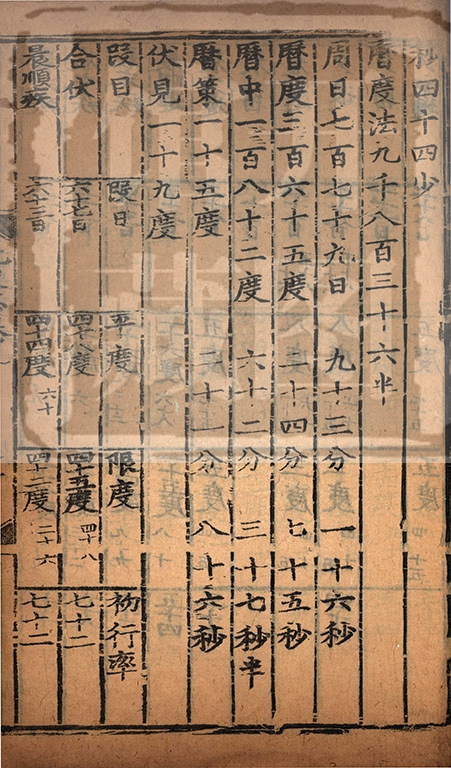 秒四十四少
曆度法九千八百三十六半
周日七百七十九日 九十三分 一十六秒
曆度三百六十五度 二十四分 七十五秒
曆中一百八十二度 六十二分 三十七秒半
曆策一十五度 二十一分 八十六秒
伏見一十九度
段目 段日 平度 限度 初行率
合伏 六十七日 四十八度 四十五度 四十八 七十二
晨順疾 六十三日 四十四度 六十 四十二度 二十六 七十二